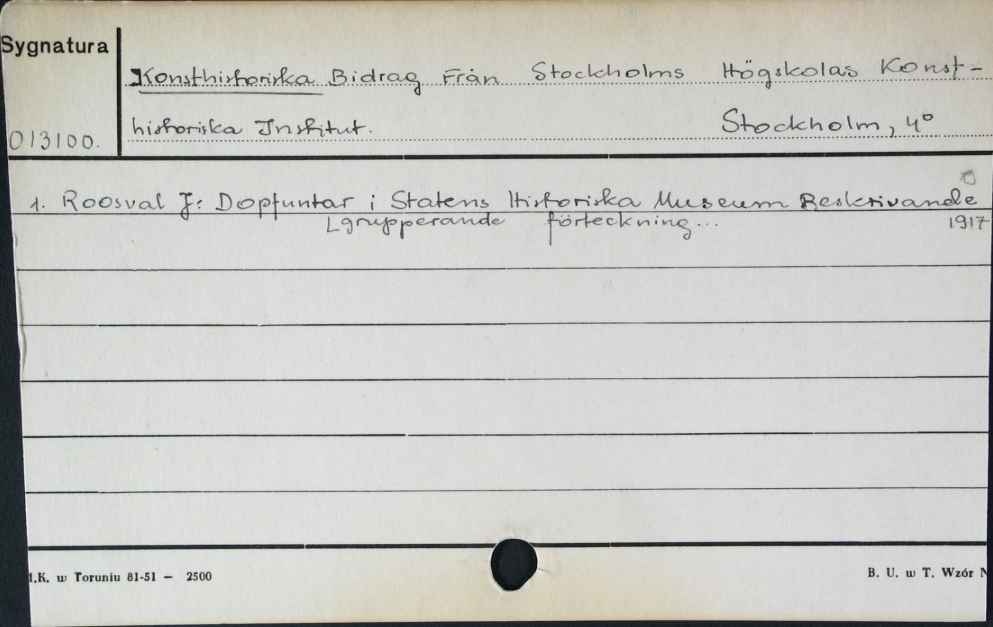 Sygnatura
Konsthistoriska Bidrag Från Stockholms Högskolas Konst-
historiska Institut. Stockholm, 4°
013100.
1. Roosval J: Dopfuntar i Statens Historiska Museum Beskrivande
grupperande förteckning... 1917
.K. w Toruniu 81-51 — 2500
B. U. w T. Wzór N